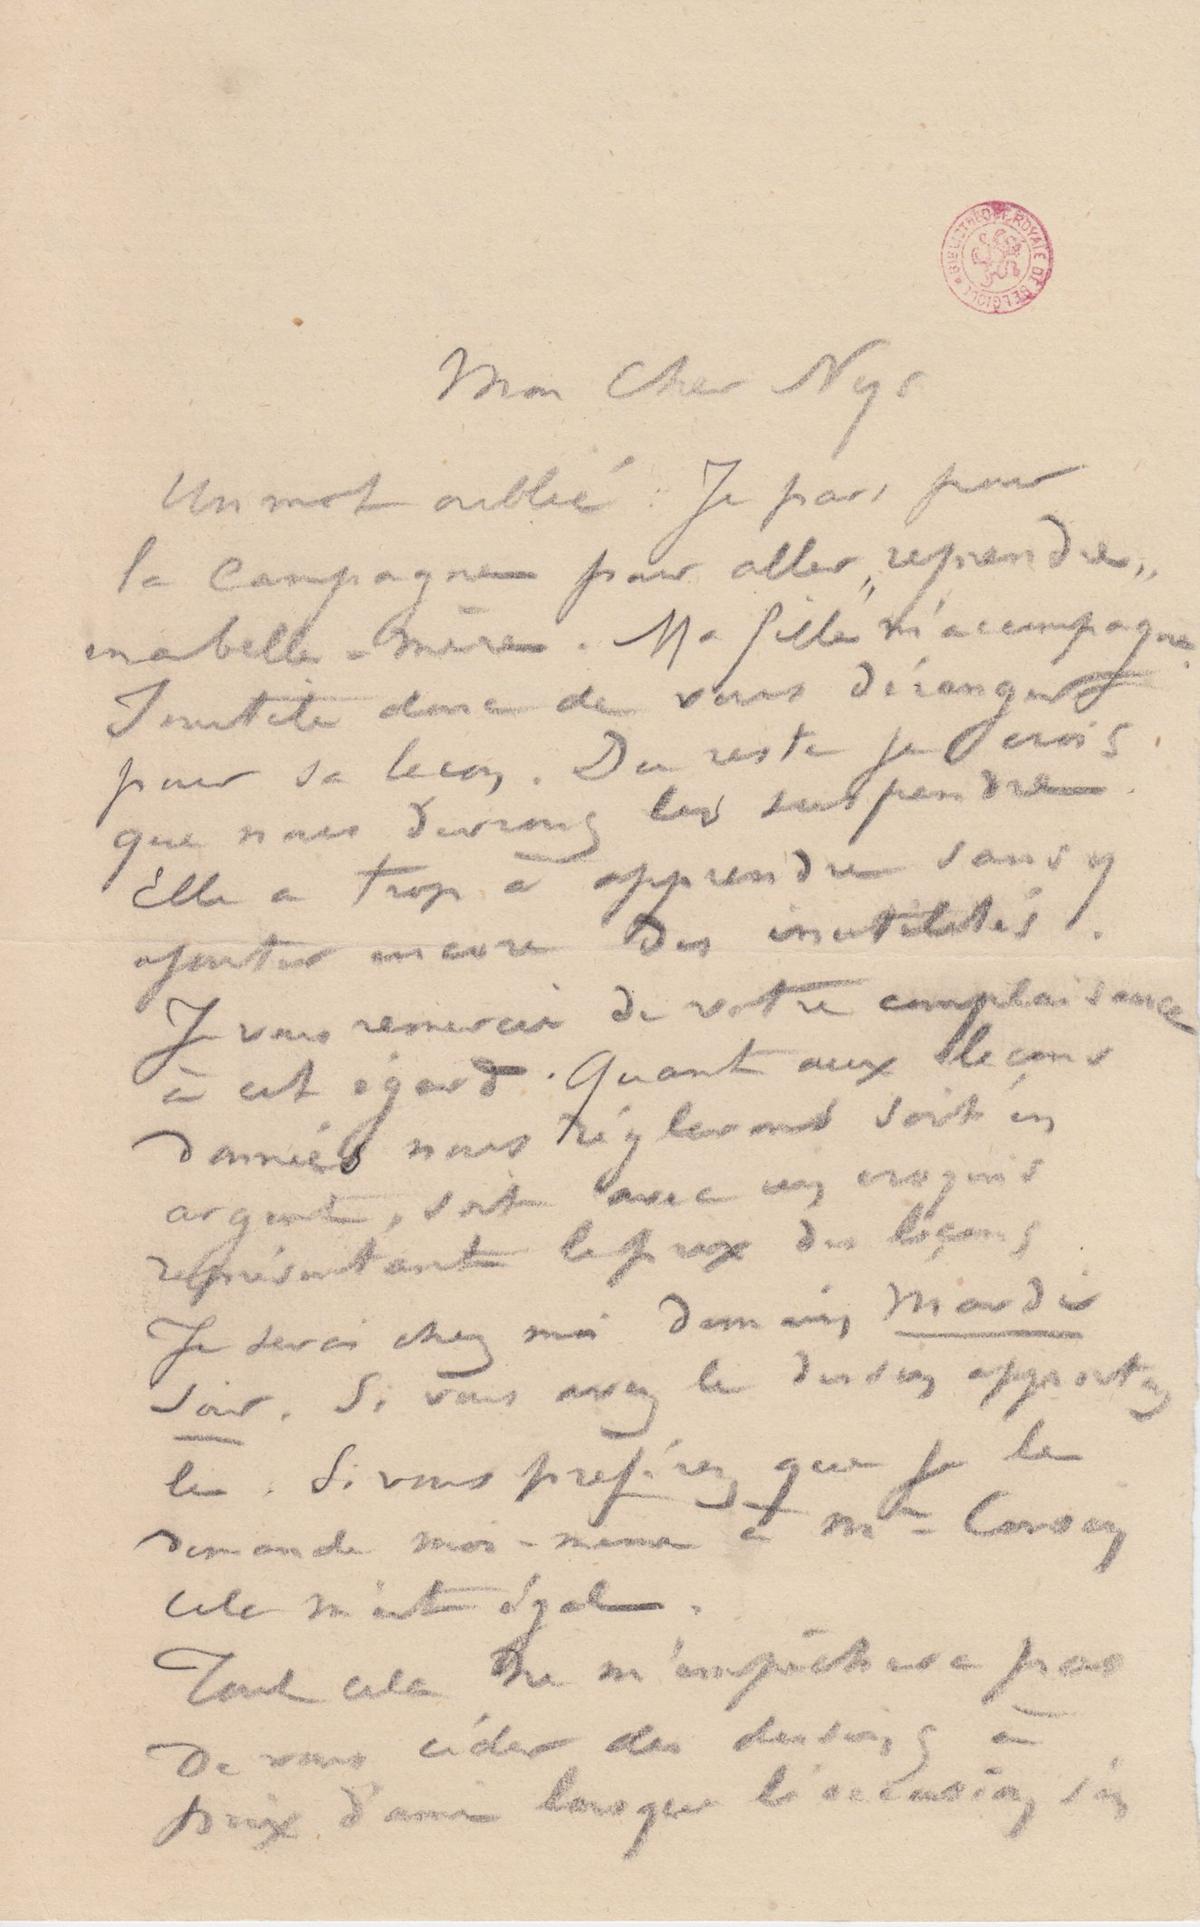 BIBLIOTHÈQUE ROYALE DE BELGIQUE
Mon Cher Nys
Un mot oublié : Je pars pour
la Campagne pour aller „reprendre„
ma belle-mère. Ma fille m'accompagne.
Inutile donc de vous déranger
pour sa leçon. Du reste je crois
que nous devrons les suspendre.
Elle a trop à apprendre sans y
ajouter encore des inutilités.
Je vous remercie de votre complaisance
à cet égard. Quant aux leçons
données nous réglerons soit en
argent, soit avec un croquis
représentant le prix des leçons
Je serai chez moi demain Mardi
soir. Si vous avez le dessin apportez
le. Si vous préférez que je le
demande moi-même à Mr
cela m'est égal.
Tout cela ne m'empêchera pas
de vous céder des dessins à
prix d'ami lorsque l'occasion s'en